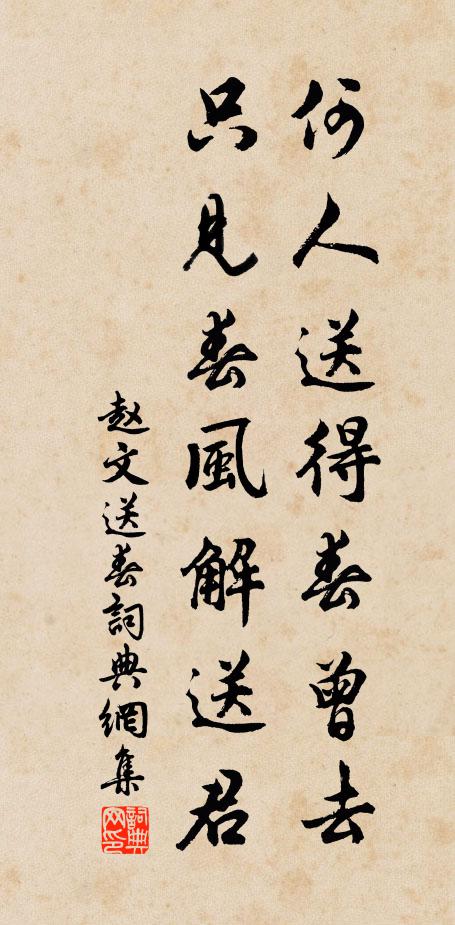 何人送得春曾去
只見春風解送君
趙文送春詞典網集
詞典網印